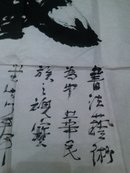 書法藝術
為中華民
族之瑰寶